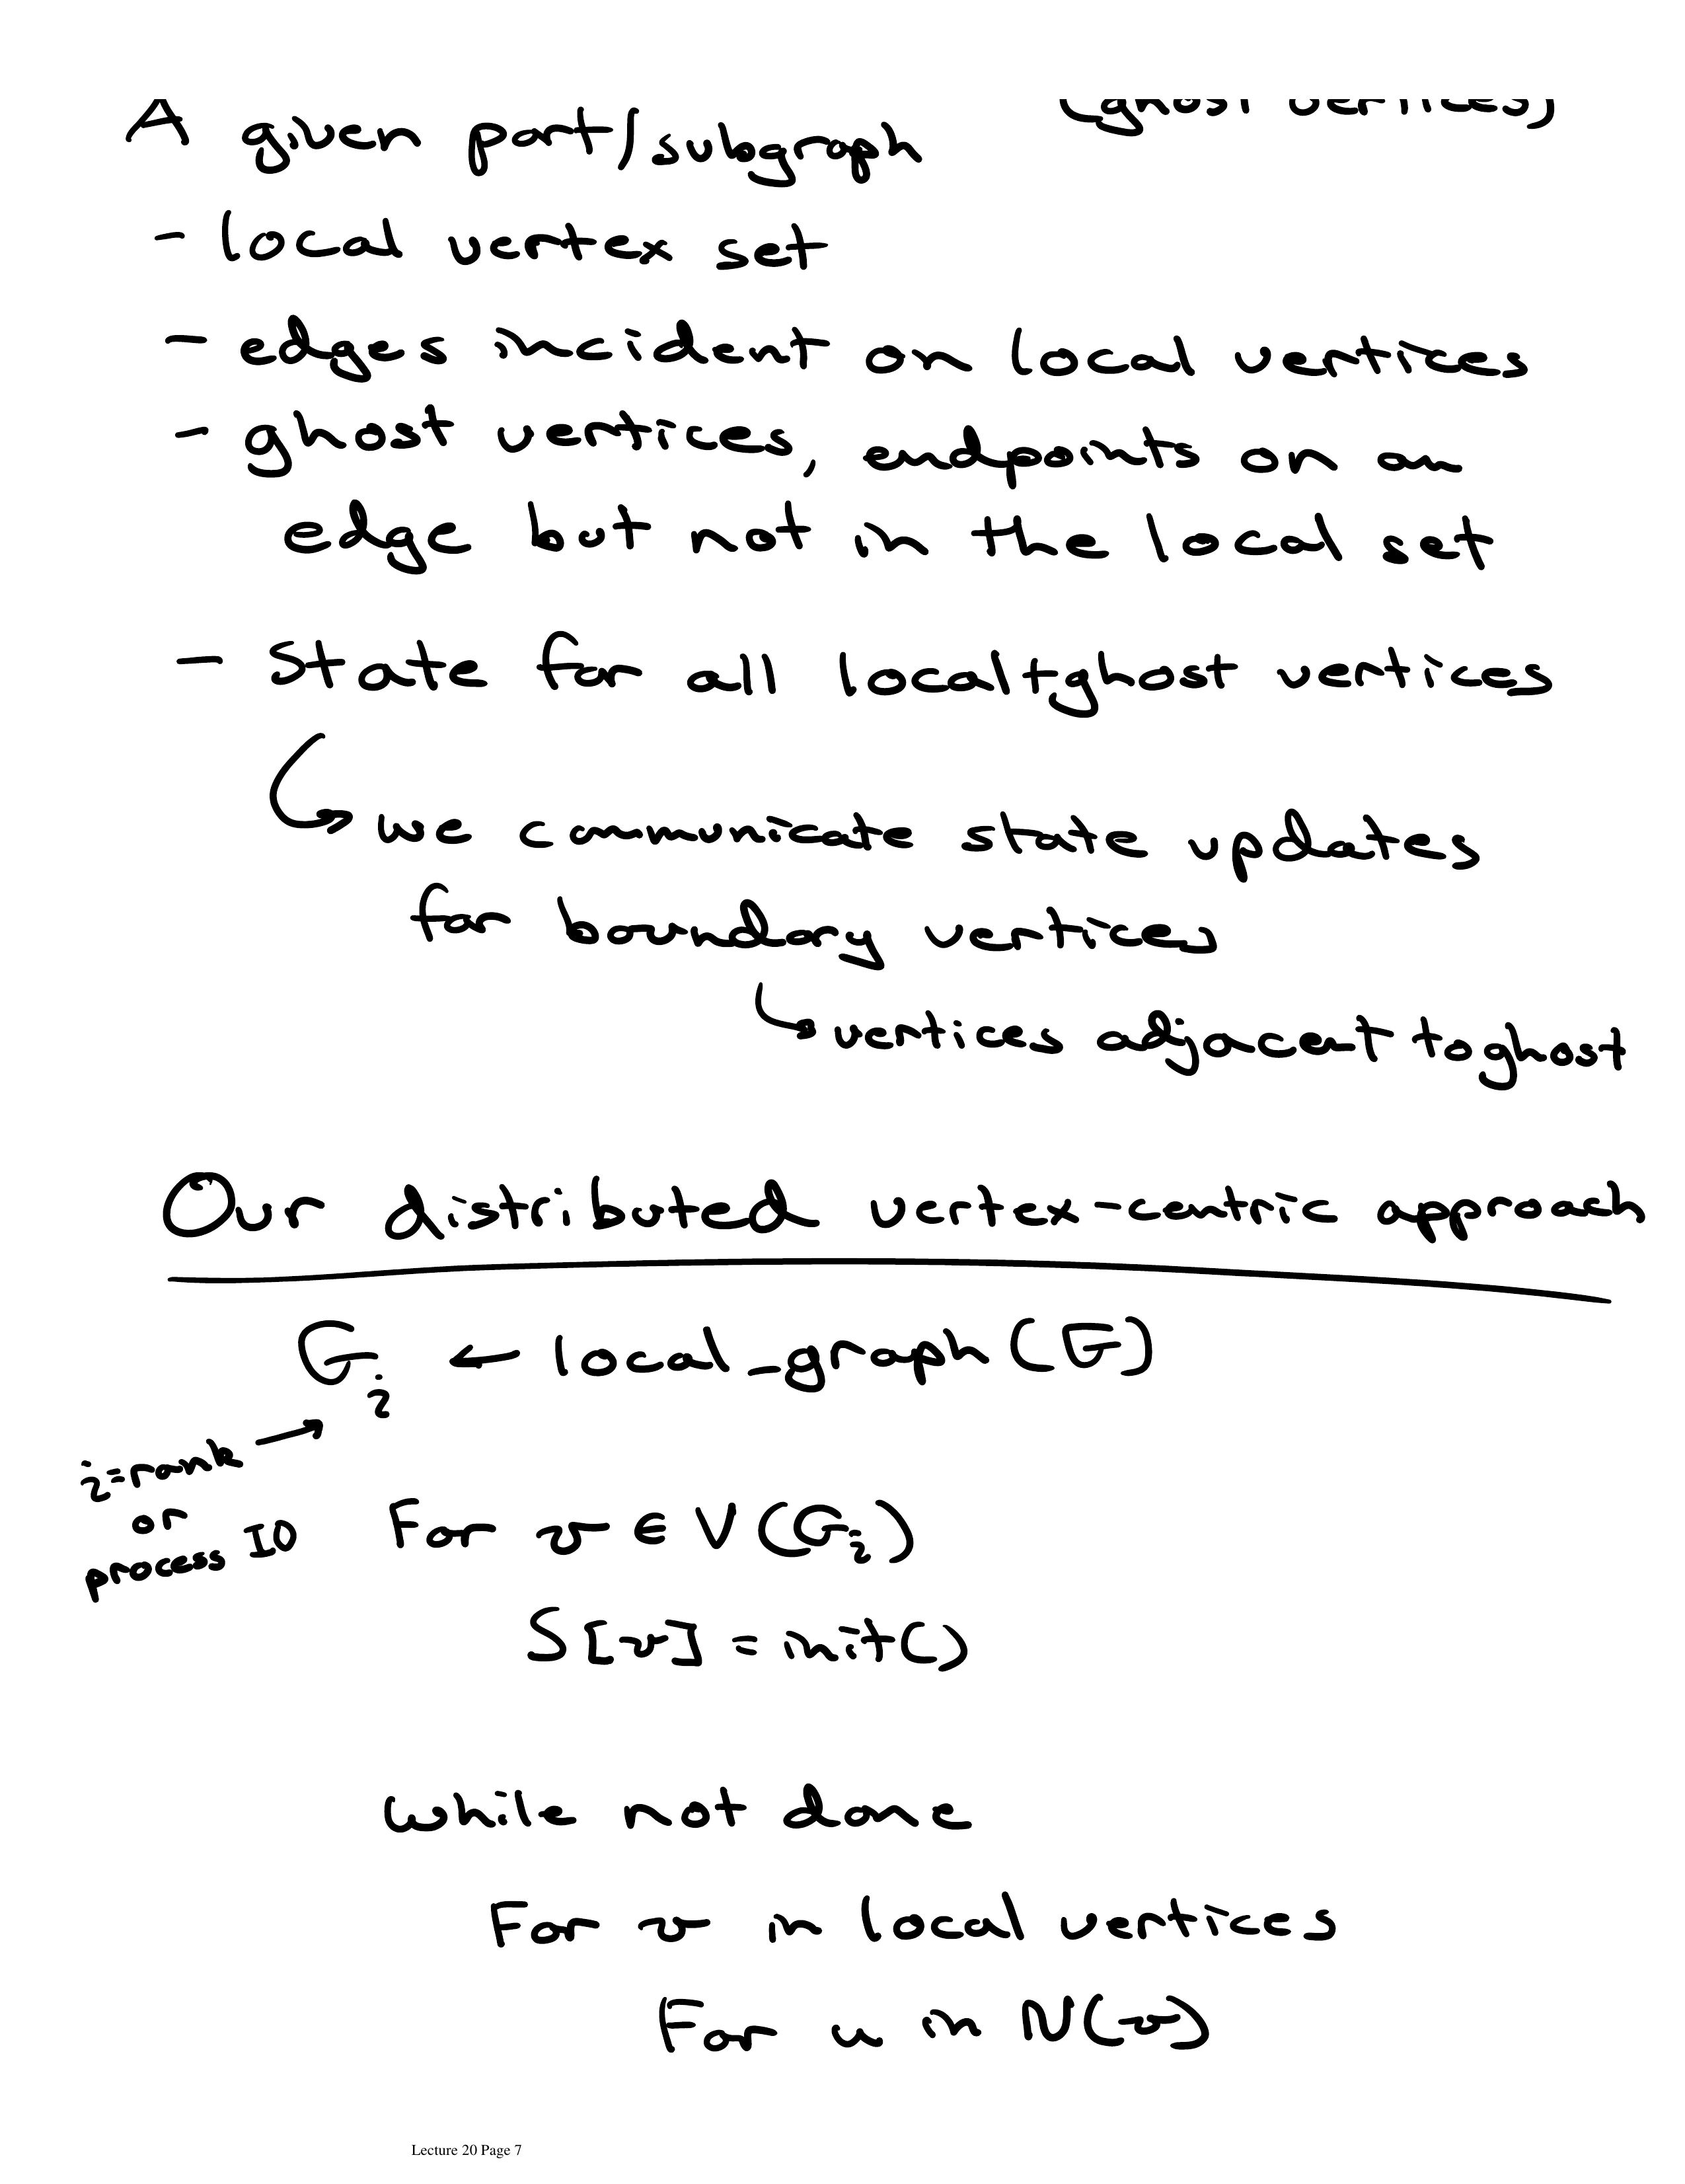 (ghost vertices)
A given part/subgraph
- local vertex set
- edges incident on local vertices
- ghost vertices, endpoints on an
edge but not in the local set
- State for all local+ghost vertices
↳ we communicate state updates
for boundary vertices
↳ vertices adjacent to ghost
Our distributed vertex-centric approach
G_i ← local_graph(G)
i=rank →
or
process ID
For v ∈ V(G_i)
S[v] = init()
while not done
For v in local vertices
For u in N(v)
Lecture 20 Page 7